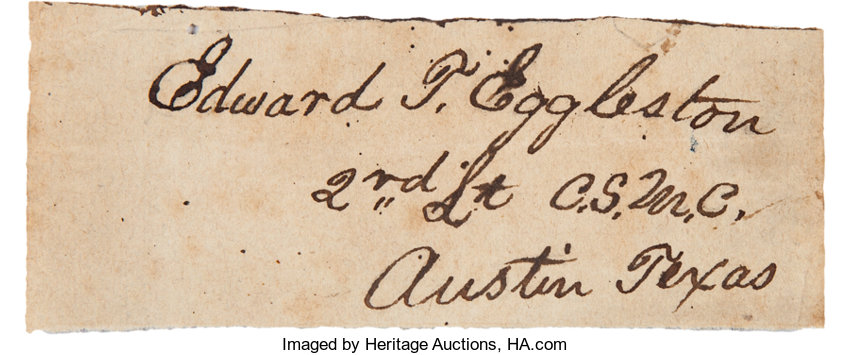 Edward T. Eggleston
2rd Lt C.S.M.C.
Austin Texas
Imaged by Heritage Auctions, HA.com